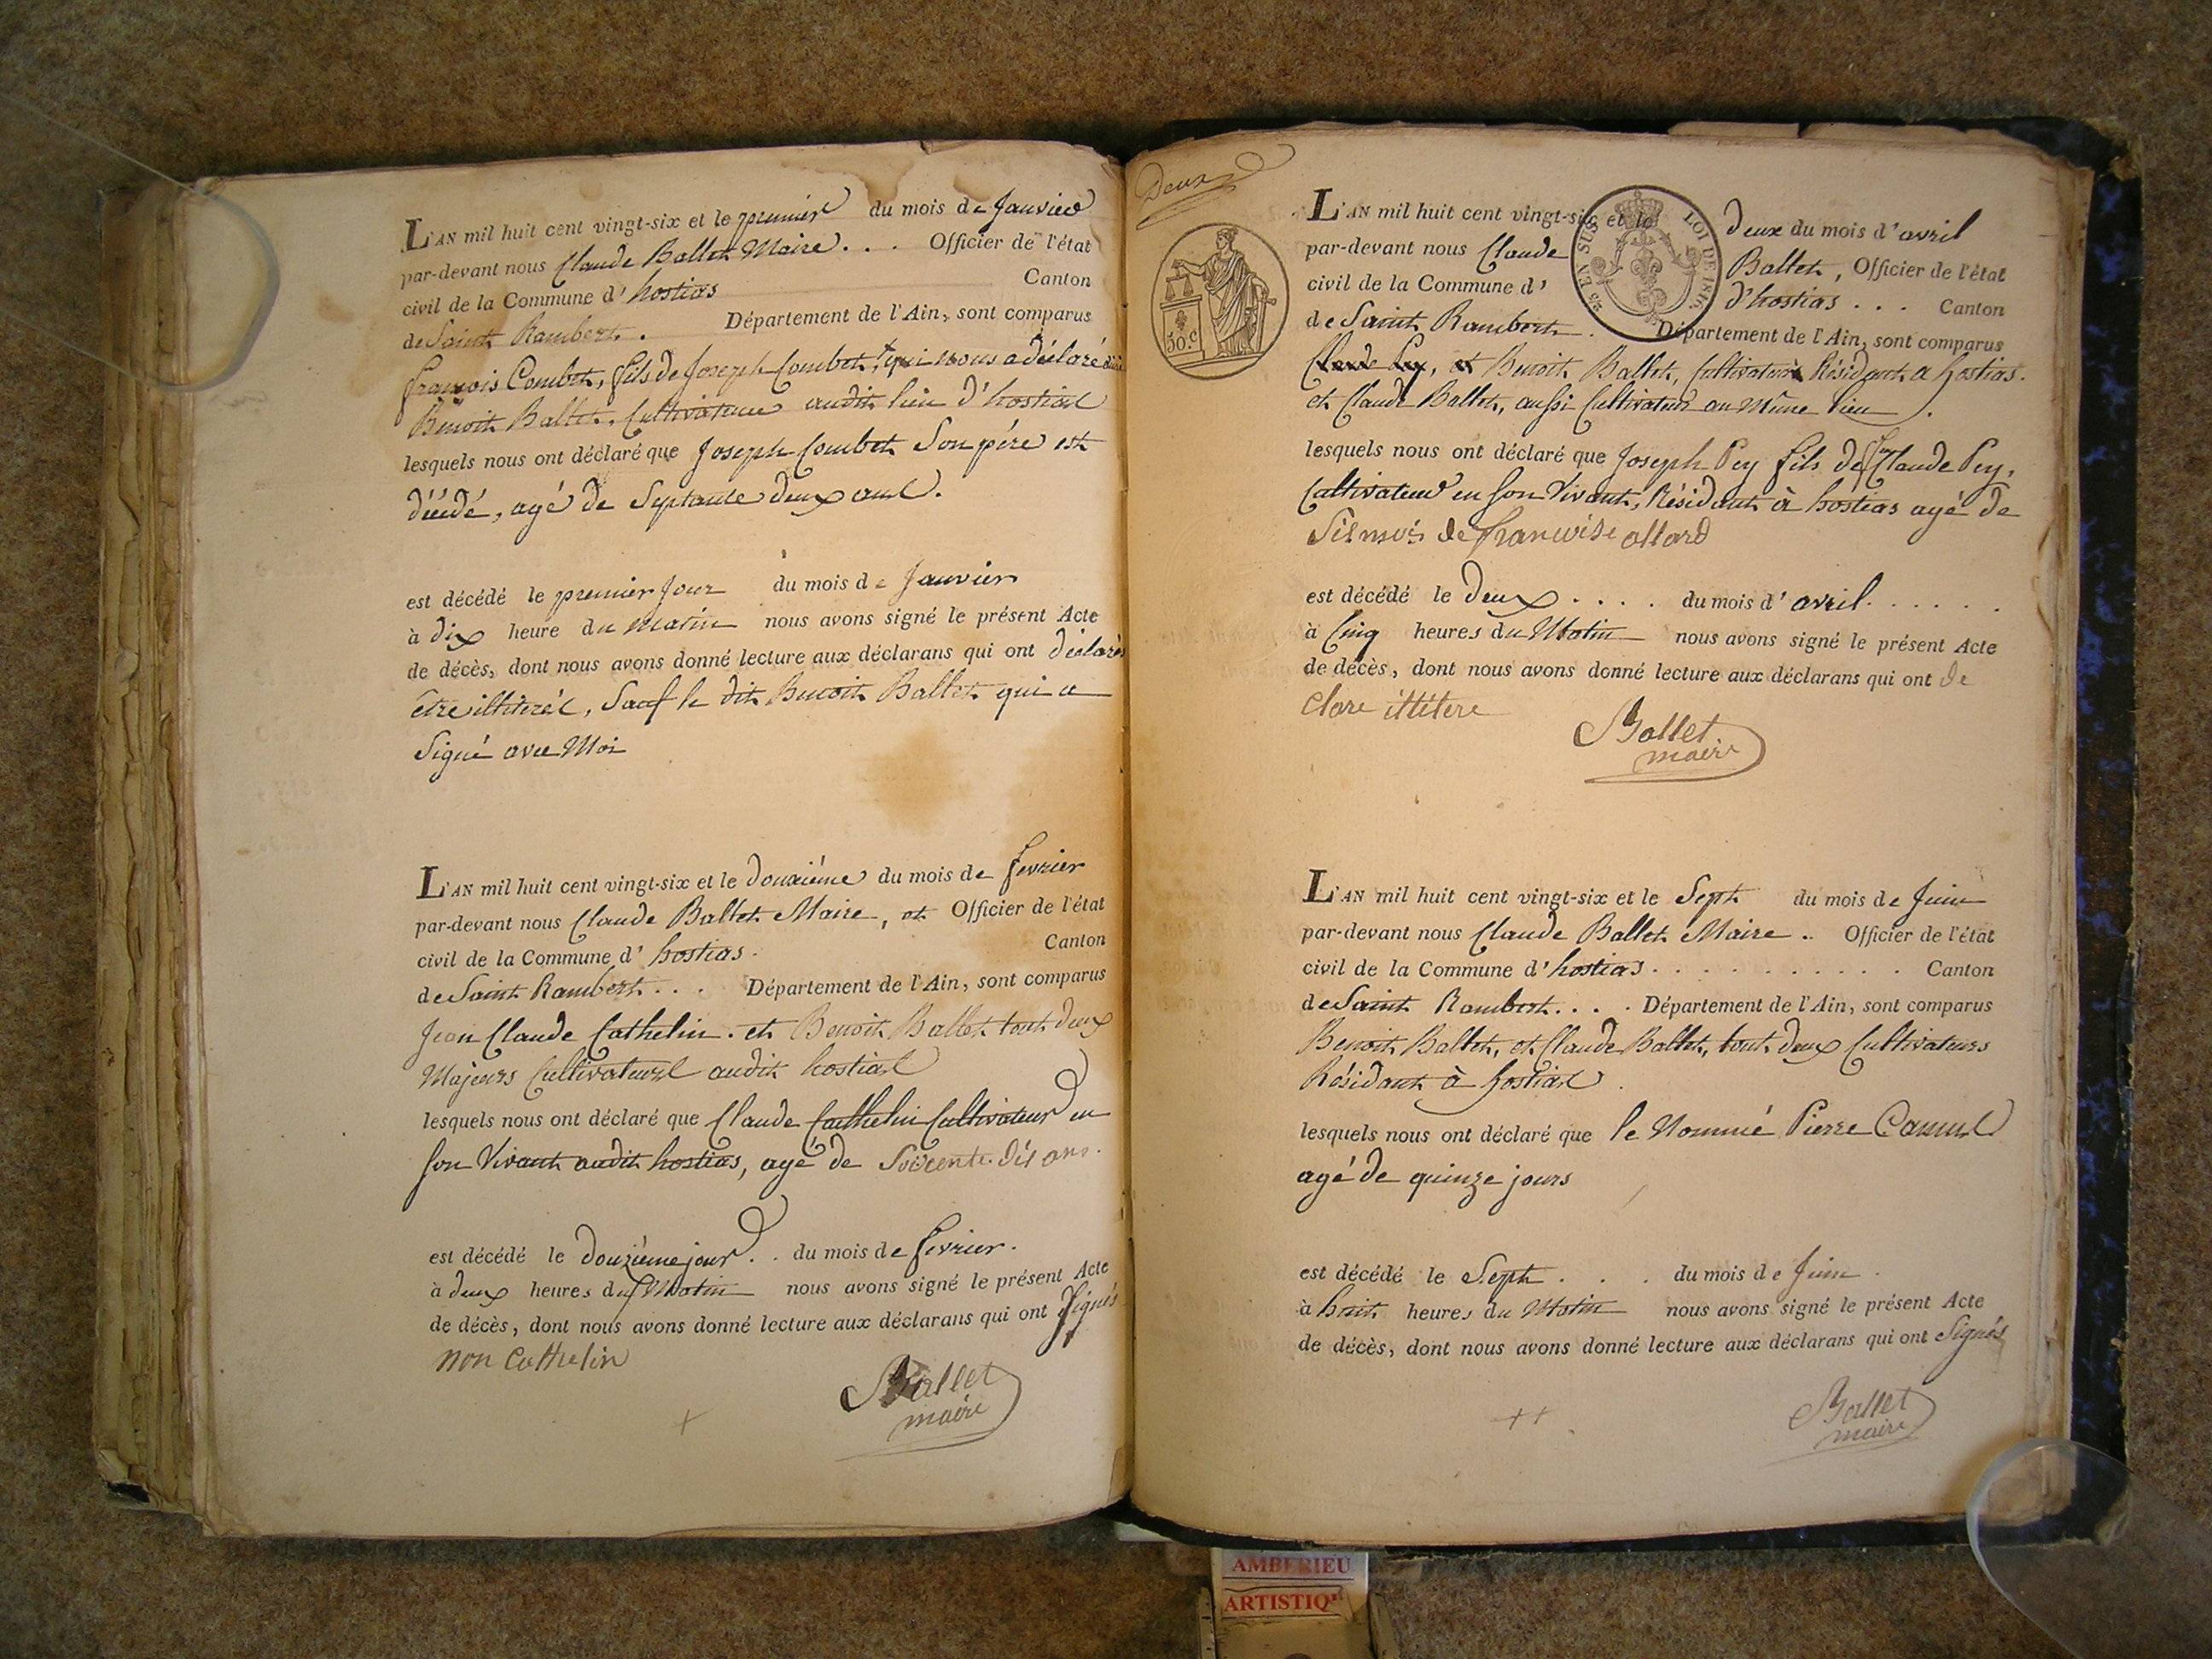 L'AN mil huit cent vingt-six et le premier du mois de Janvier
par-devant nous Claude Ballet Maire . . . Officier de l'état
civil de la Commune d' hostias Canton
de Saint Rambert . Département de l'Ain, sont comparus
françois Combet, fils de Joseph Combet, qui nous a déclaré
Benoit Ballet, Cultivateur audit lieu d'hostias
lesquels nous ont déclaré que Joseph Combet Son père est
décédé, agé de Septante deux ans.
est décédé le premier Jour du mois de Janvier
à dix heure du matin nous avons signé le présent Acte
de décès, dont nous avons donné lecture aux déclarans qui ont déclarés
etre illitéré, Sauf le dit Benoit Ballet qui a
Signé avec Moi
L'AN mil huit cent vingt-six et le douzième du mois de fevrier
par-devant nous Claude Ballet Maire, et Officier de l'état
civil de la Commune d' hostias . Canton
de Saint Rambert . . . Département de l'Ain, sont comparus
Jean Claude Cathelin . et Benoit Ballet tout deux
Majeurs Cultivateurs audit hostias
lesquels nous ont déclaré que Claude Cathelin Cultivateur en
son Vivant audit hostias, agé de Soicente dis ans .
est décédé le douzième jour . . du mois de fevrier .
à deux heures du Matin nous avons signé le présent Acte
de décès, dont nous avons donné lecture aux déclarans qui ont Signés
non Cathelin
Ballet
maire
Deux
30.C
25 EN SUS LOI DE 1816
L'AN mil huit cent vingt-six et le deux du mois d'avril
par-devant nous Claude Ballet, Officier de l'état
civil de la Commune d' d'hostias . . . Canton
de Saint Rambert . Département de l'Ain, sont comparus
Claude Pey, et Benoit Ballet, Cultivateur Résidant a hostias .
et Claude Ballet, aussi Cultivateur au Même lieu .
lesquels nous ont déclaré que Joseph Pey fils de Claude Pey,
Cultivateur en son Vivant, Résidant à hostias agé de
Sis mois de francoise allard
est décédé le Deux . . . . du mois d'avril . . . . . .
à Cinq heures du Matin nous avons signé le présent Acte
de décès, dont nous avons donné lecture aux déclarans qui ont de
clare ittitere
Ballet
maire
L'AN mil huit cent vingt-six et le Sept du mois de Juin
par-devant nous Claude Ballet Maire . Officier de l'état
civil de la Commune d'hostias . . . . . . . . . . . Canton
de Saint Rambert . . . . Département de l'Ain, sont comparus
Benoit Ballet, et Claude Ballet, tout deux Cultivateurs
Résidant à hostias .
lesquels nous ont déclaré que le Nommé Pierre Camus
agé de quinze jours
est décédé le Sept . . . du mois de Juin .
à huit heures du Matin nous avons signé le présent Acte
de décès, dont nous avons donné lecture aux déclarans qui ont Signés
Ballet
maire
AMBERIEU
ARTISTIQ